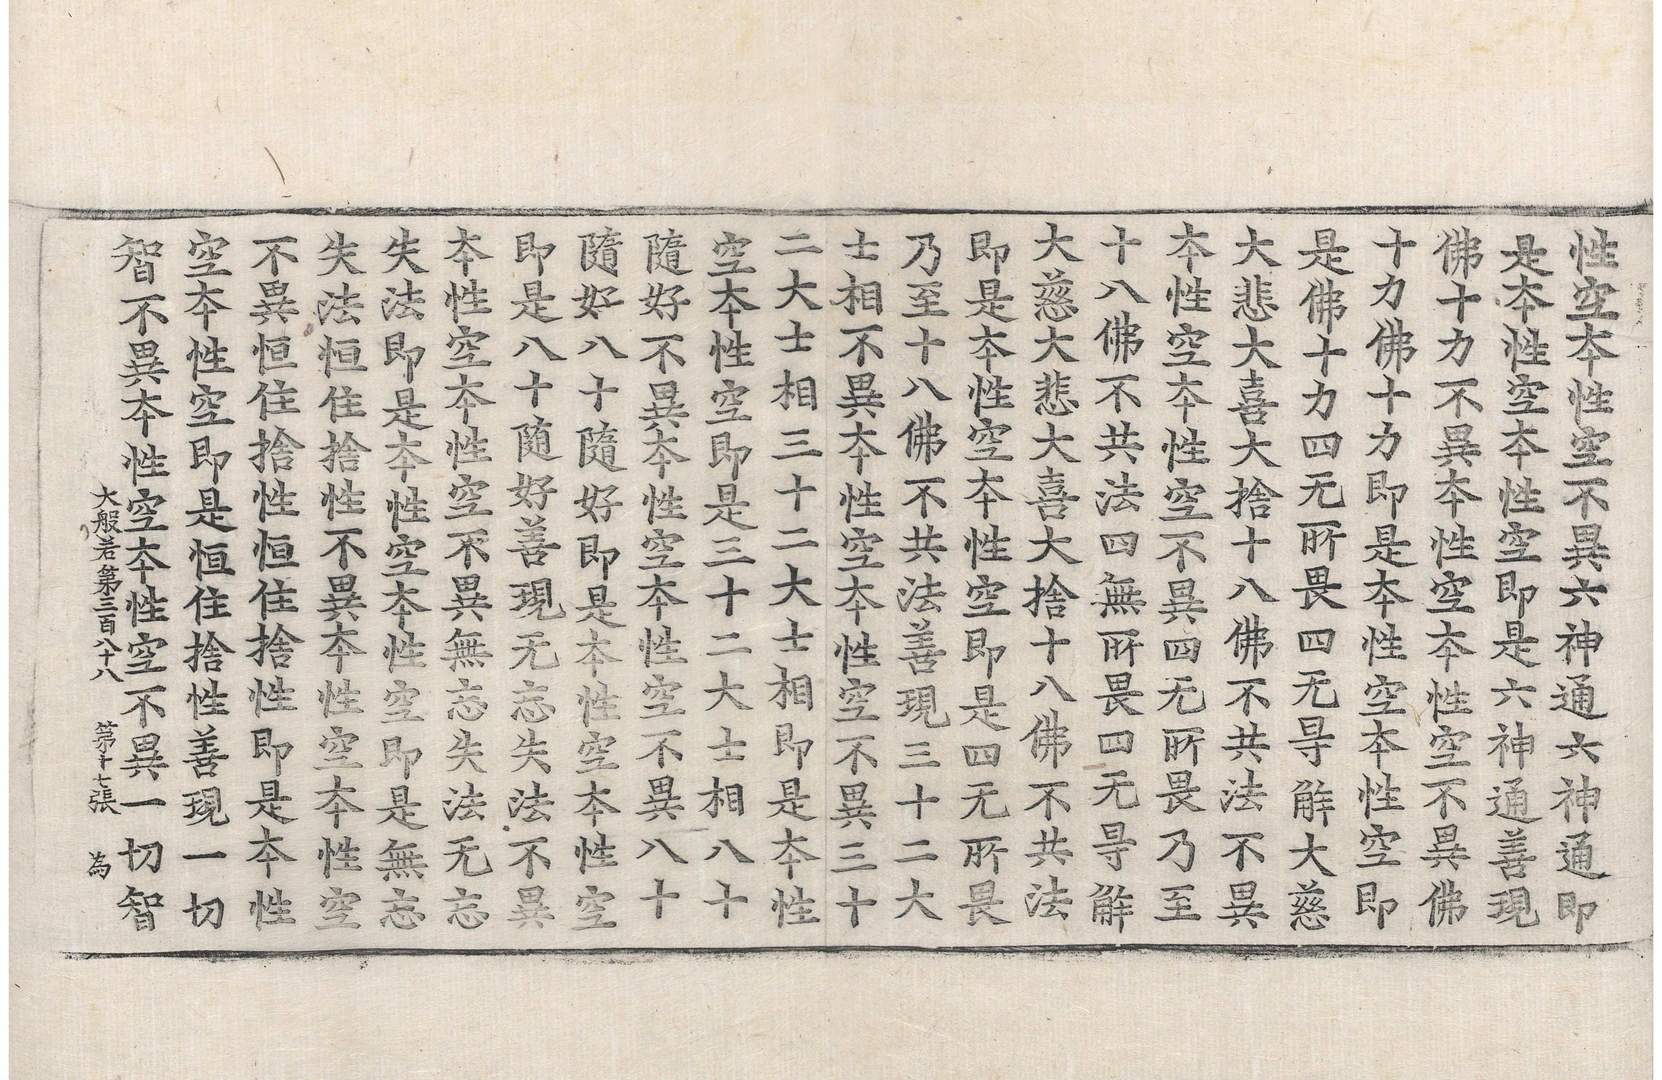 性空本性空不異六神通六神通即
是本性空本性空即是六神通善現
佛十力不異本性空本性空不異佛
十力佛十力即是本性空本性空即
是佛十力四无所畏四无㝵解大慈
大悲大喜大捨十八佛不共法不異
本性空本性空不異四无所畏乃至
十八佛不共法四無所畏四无㝵解
大慈大悲大喜大捨十八佛不共法
即是本性空本性空即是四无所畏
乃至十八佛不共法善現三十二大
士相不異本性空本性空不異三十
二大士相三十二大士相即是本性
空本性空即是三十二大士相八十
隨好不異本性空本性空不異八十
隨好八十隨好即是本性空本性空
即是八十随好善現无忘失法不異
本性空本性空不異無忘失法无忘
失法即是本性空本性空即是無忘
失法恒住捨性不異本性空本性空
不異恒住捨性恒住捨性即是本性
空本性空即是恒住捨性善現一切
智不異本性空本性空不異一切智
大般若第三百八十八 第十七張 為